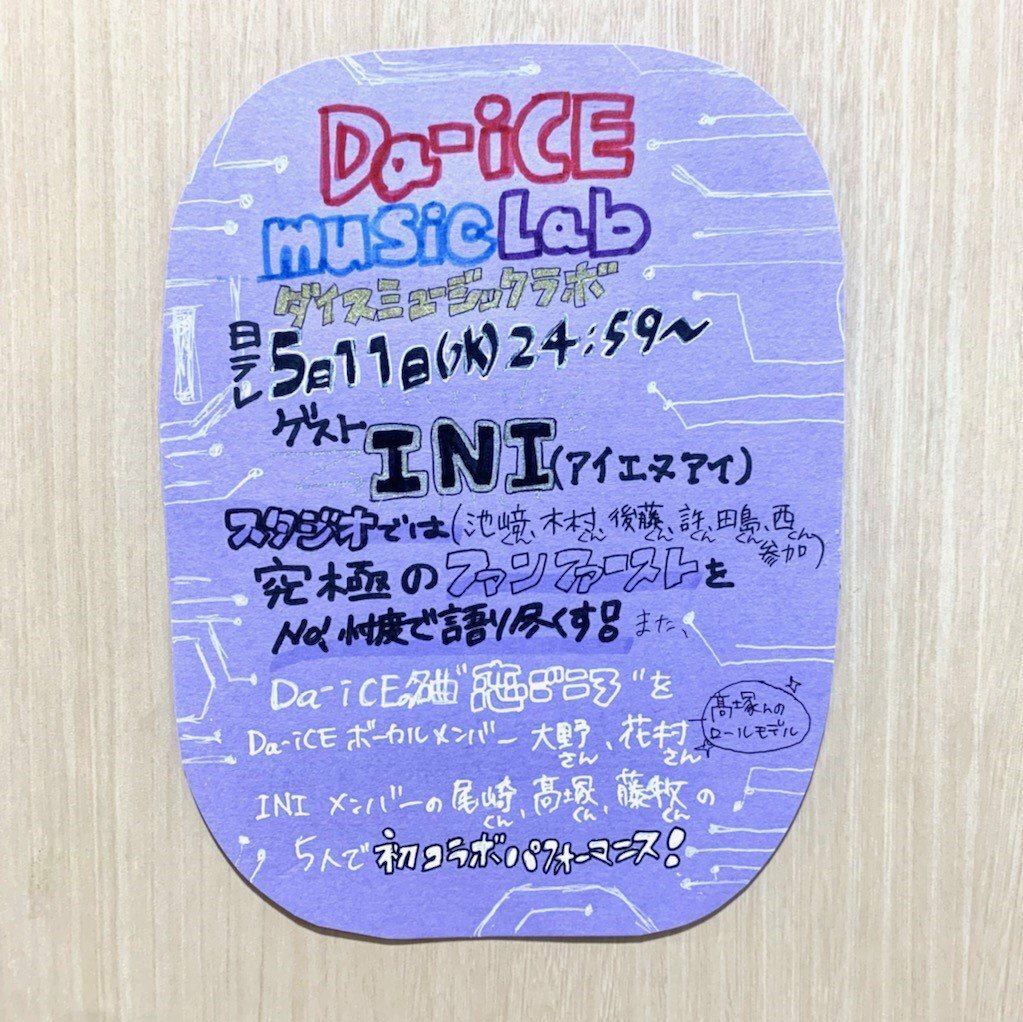 Da-iCE
music Lab
ダイスミュージックラボ
日テレ 5月11日(水)24:59～
ゲスト INI(アイエヌアイ)
スタジオでは(池﨑くん、木村くん、後藤くん、許くん、田島くん、西くん参加)
究極のファンファーストを
No!忖度で語り尽くす! また、
Da-iCEの名曲"恋ごころ"を
Da-iCE ボーカルメンバー 大野さん、花村さん
髙塚くんのロールモデル
INI メンバーの尾崎くん、髙塚くん、藤牧くんの
5人で初コラボパフォーマンス!